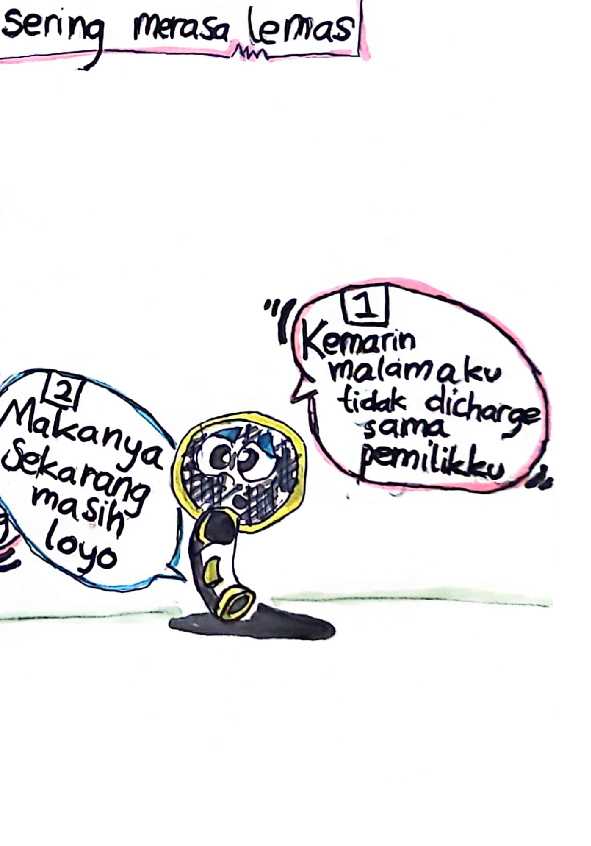 sering merasa lemas
1
Kemarin
malam aku
tidak dicharge
sama
pemilikku
2
Makanya
sekarang
masih
loyo